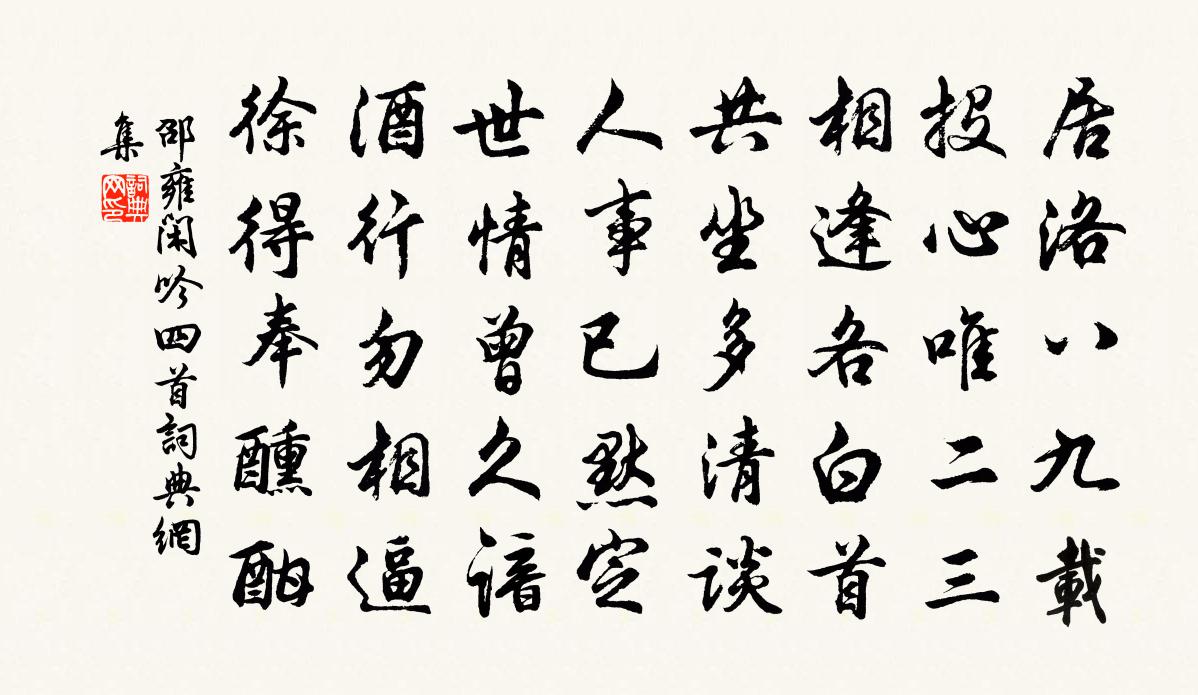 居洛八九載
投心唯二三
相逢各白首
共坐多清談
人事已默定
世情曾久諳
酒行勿相逼
徐得奉醺酣
邵雍閑吟四首詞典網
集
詞典网印